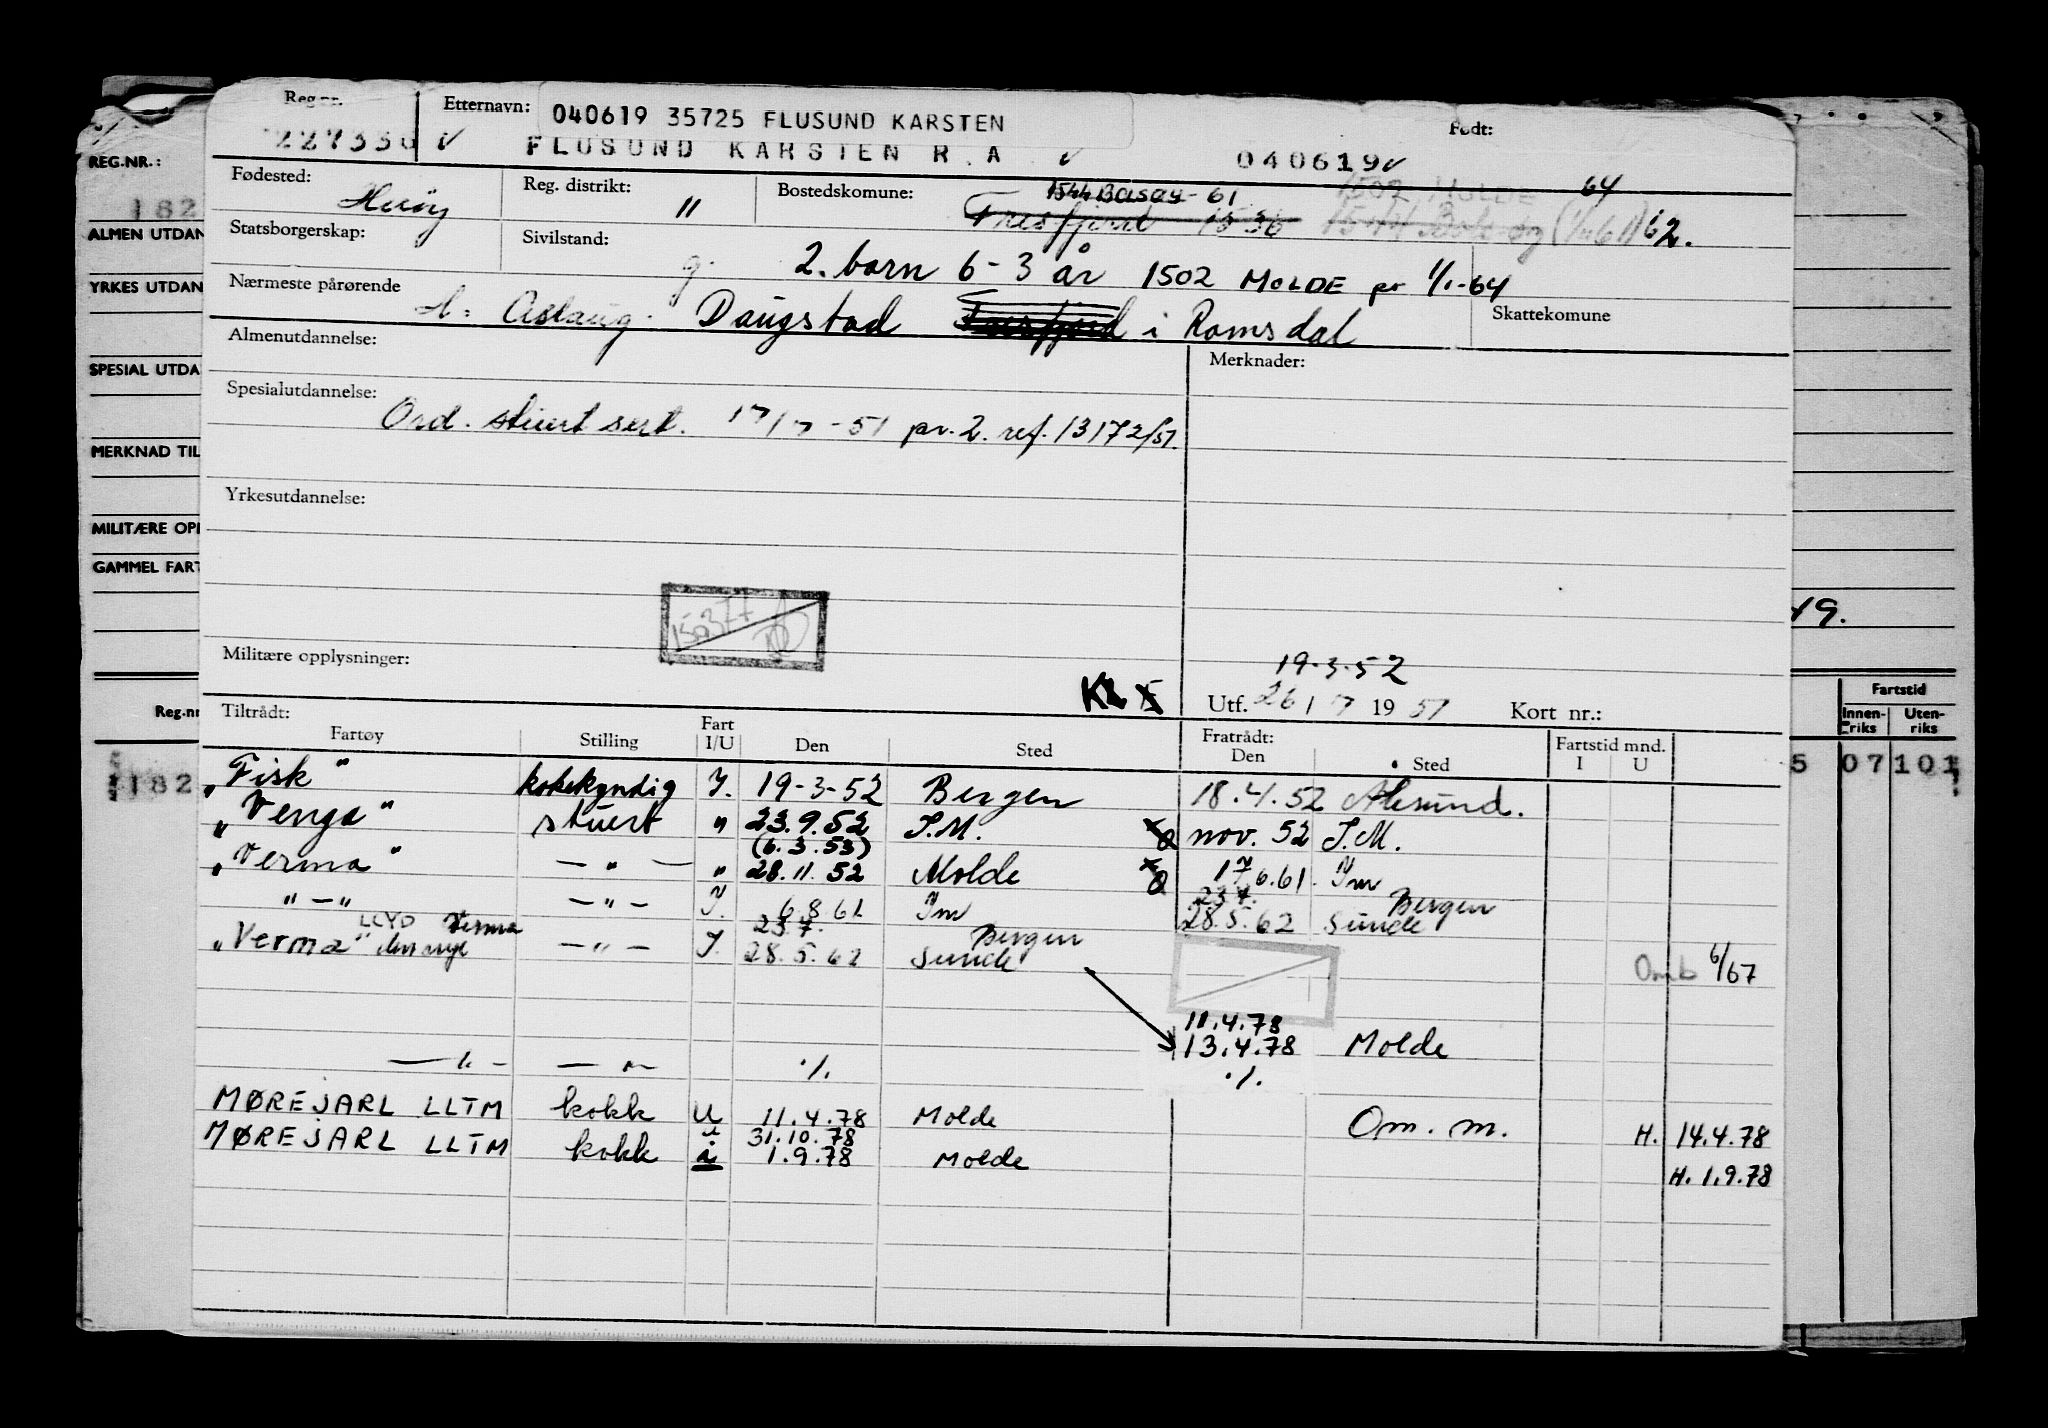 Reg.nr. Etternavn: 040619 35725 FLUSUND KARSTEN Født:
FLUSUND KARSTEN R.A ✓ 040619 ✓
REG.NR.: 182
Fødested: Herøy Reg. distrikt: " Bostedskomune: 1544 Bolsøy - 61 1502 MOLDE 64
Tresfjord 1536 1544 Bolsøy (1/1-61) 62.
ALMEN UTDAN
Statsborgerskap: Sivilstand: g. 2. barn 6 - 3 år 1502 MOLDE pr 1/1-64
YRKES UTDAN
Nærmeste pårørende H: Aslaug. Daugstad Tresfjord i Romsdal Skattekomune
Almenutdannelse: Merknader:
SPESIAL UTDA
Spesialutdannelse: Ord. stuert sert. 17/7-51 pr. 2. ref. 13172/51.
MERKNAD TIL
Yrkesutdannelse:
MILITÆRE OPP
GAMMEL FART
49.
Militære opplysninger: 19-3-52
Utf. 26/7 1951 Kort nr.:
Reg.nr Fartstid
Innen-riks Uten-riks
182 5 07 101
Tiltrådt: Fratrådt: Fartstid mnd.
Fartøy Stilling Fart I/U Den Sted Den Sted I U
"Fisk" kokekyndig I. 19-3-52 Bergen 18.4.52 Ålesund.
"Venga" stuert " 23.9.52 I.M. nov. 52 I.M.
(6.3.53)
"Verma" — " — " 28.11.52 Molde 17.6.61. Im
" — " — " — I. 6.8.61 Im 23.7. Bergen
28.5.62 Sunde
LLYD Verma 23.7. Bergen
"Verma" den nye — " — I. 28.5.62 Sunde Omb 6/67
11.4.78
13.4.78 Molde
— " — — " — ./. ./.
MØREJARL LLTM kokk U 11.4.78 Molde Om. m. H. 14.4.78
31.10.78
MØREJARL LLTM kokk i 1.9.78 Molde H. 1.9.78